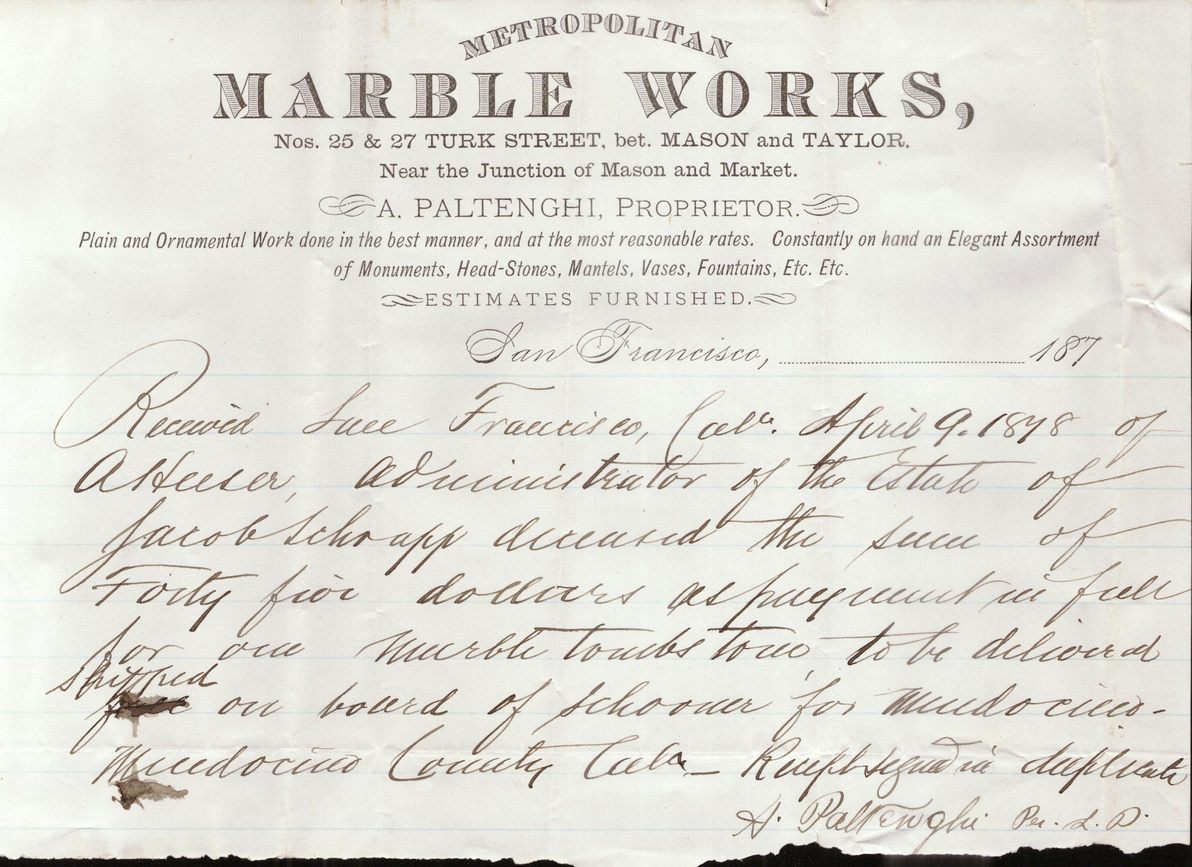 METROPOLITAN
MARBLE WORKS,
Nos. 25 & 27 TURK STREET, bet. MASON and TAYLOR.
Near the Junction of Mason and Market.
A. PALTENGHI, PROPRIETOR.
Plain and Ornamental Work done in the best manner, and at the most reasonable rates. Constantly on hand an Elegant Assortment
of Monuments, Head-Stones, Mantels, Vases, Fountains, Etc. Etc.
ESTIMATES FURNISHED.
San Francisco, 187
Received San Francisco, Cala. April 9. 1878 of
A Heeser, Administrator of the Estate of
Jacob Schrapp deceased the sum of
Forty five dollars as payment in full
for one marble tombstone to be delivered
shipped
free on board of schooner for Mendocino-
Mendocino County Cala - Receipt signed in duplicate
A. Paltenghi Per. L. D.